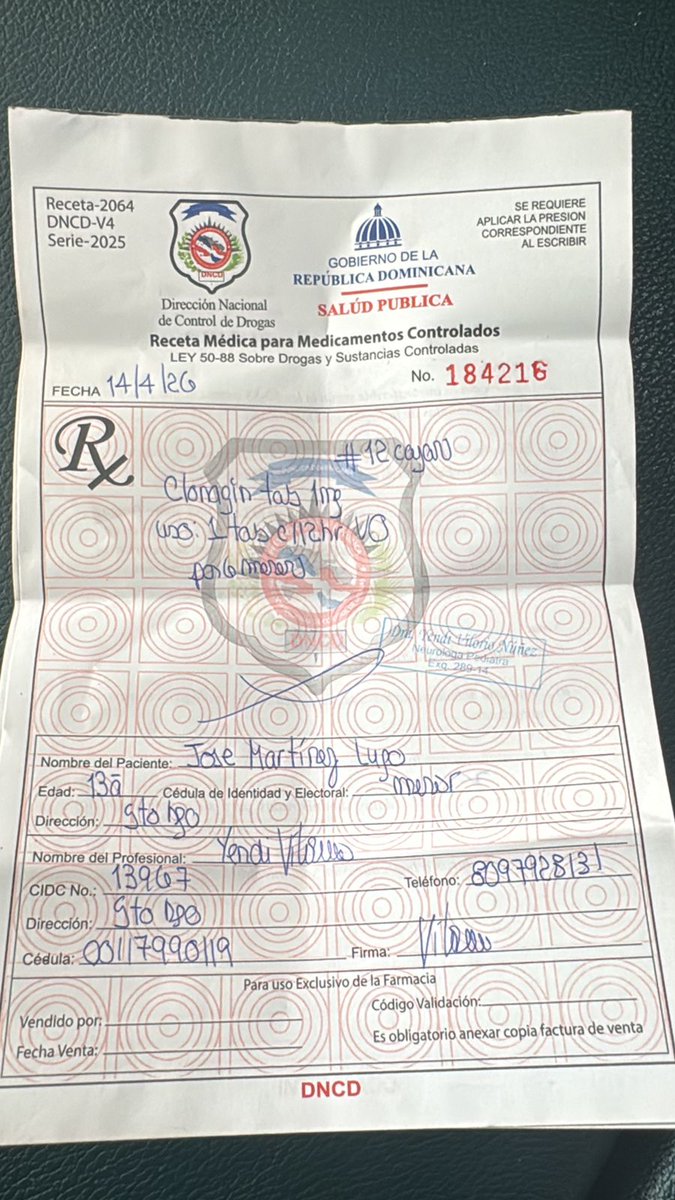 Receta-2064
DNCD-V4
Serie-2025
DNCD
Dirección Nacional
de Control de Drogas
GOBIERNO DE LA
REPÚBLICA DOMINICANA
SALÚD PUBLICA
SE REQUIERE
APLICAR LA PRESION
CORRESPONDIENTE
AL ESCRIBIR
Receta Médica para Medicamentos Controlados
LEY 50-88 Sobre Drogas y Sustancias Controladas
FECHA 14/4/26
No. 184216
Rx
#12 cajas
Clonagin tab 1mg
uso: 1 tab c/12hr VO
DNCD
Dra. Yendi Vilorio Núñez
Neuróloga Pediatra
Exq. 289-14
Nombre del Paciente: Jose Martínez Lugo
Edad: 13a Cédula de Identidad y Electoral: menor
Dirección: Sto Dgo
Nombre del Profesional: Yendi Vilorio
CIDC No.: 13967 Teléfono: 8097928131
Dirección: Sto Dgo
Cédula: 00117990119 Firma:
Para uso Exclusivo de la Farmacia
Vendido por: Código Validación:
Fecha Venta: Es obligatorio anexar copia factura de venta
DNCD